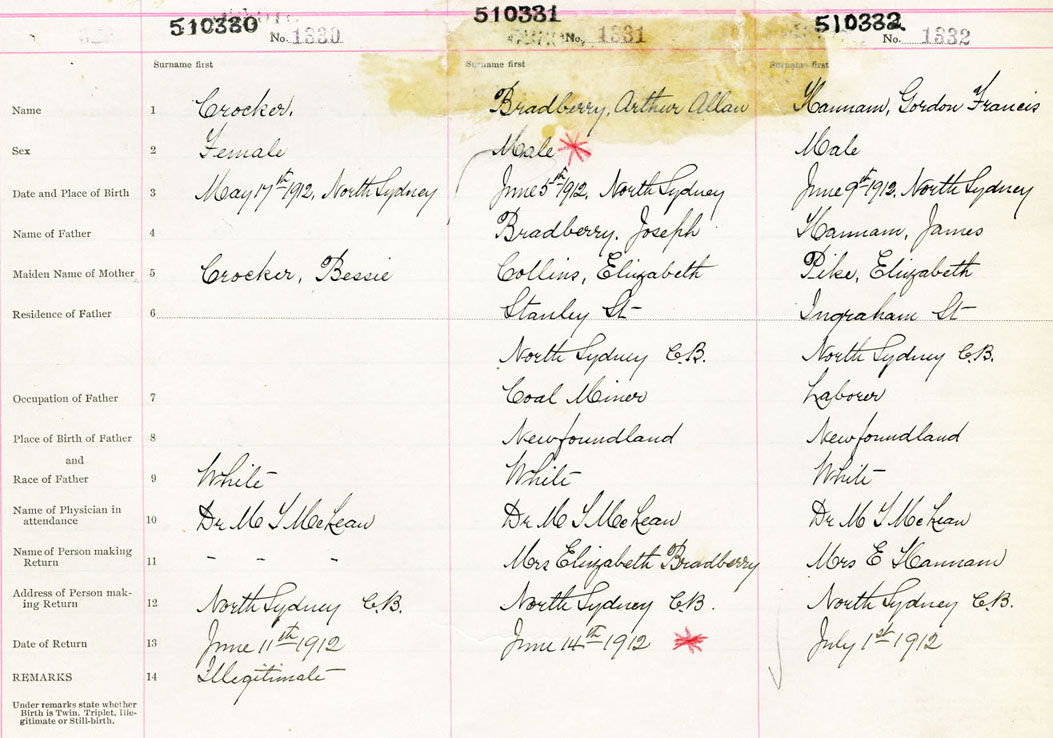 510330 510331 510332
No. 1330 No. 1331 No. 1332
Surname first Surname first Surname first
Name 1 Crocker. Bradberry, Arthur Allan Hannam, Gordon Francis
Sex 2 Female Male Male
Date and Place of Birth 3 May 17th 1912, North Sydney June 5th 1912, North Sydney June 9th 1912, North Sydney
Name of Father 4 Bradberry, Joseph Hannam, James
Maiden Name of Mother 5 Crocker, Bessie Collins, Elizabeth Pike, Elizabeth
Residence of Father 6 Stanley St Ingraham St
North Sydney C.B. North Sydney C.B.
Occupation of Father 7 Coal Miner Laborer
Place of Birth of Father 8 Newfoundland Newfoundland
and
Race of Father 9 White White White
Name of Physician in
attendance 10 Dr M McLean Dr M McLean Dr M McLean
Name of Person making
Return 11 - - - Mrs Elizabeth Bradberry Mrs E Hannam
Address of Person mak-
ing Return 12 North Sydney C.B. North Sydney C.B. North Sydney C.B.
Date of Return 13 June 11th 1912 June 14th 1912 July 1st 1912
REMARKS 14 Illegitimate
Under remarks state whether
Birth is Twin, Triplet, Ille-
gitimate or Still-birth.